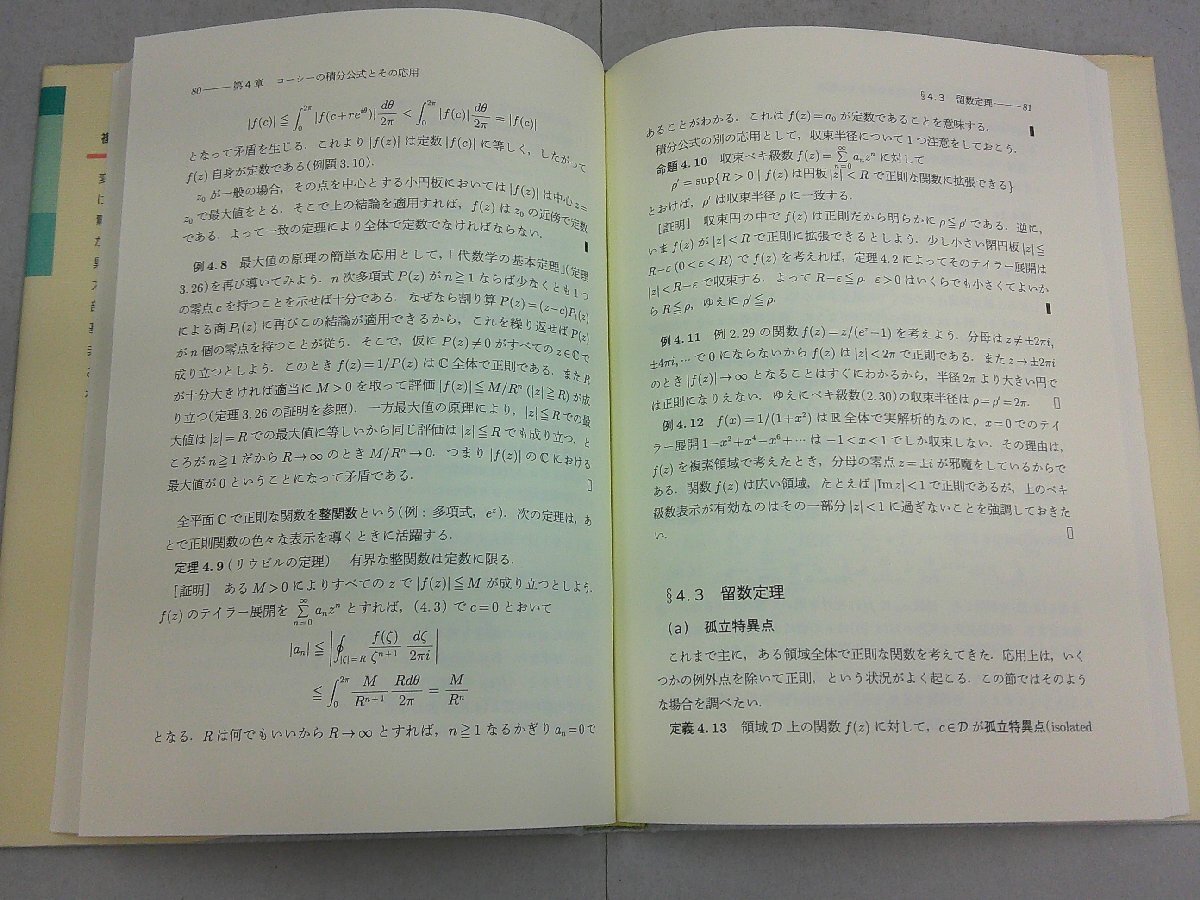 80――第4章　コーシーの積分公式とその応用
|f(c)| ≦ ∫₀^{2π} |f(c+re^{iθ})| dθ/2π < ∫₀^{2π} |f(c)| dθ/2π = |f(c)|
となって矛盾を生じる. これより |f(z)| は定数 |f(c)| に等しく, したがって
f(z) 自身が定数である(例題3.10).
z₀ が一般の場合, その点を中心とする小円板においては |f(z)| は中心 z=
z₀ で最大値をとる. そこで上の結論を適用すれば, f(z) は z₀ の近傍で定数
である. よって一致の定理により全体で定数でなければならない.
例4.8　最大値の原理の簡単な応用として,「代数学の基本定理」(定理
3.26)を再び導いてみよう. n次多項式 P(z) が n≧1 ならば少なくとも1つ
の零点 c を持つことを示せば十分である. なぜなら割り算 P(z)=(z−c)P₁(z)
による商 P₁(z) に再びこの結論が適用できるから, これを繰り返せば P(z)
が n 個の零点を持つことが従う. そこで, 仮に P(z)≠0 がすべての z∈ℂ で
成り立つとしよう. このとき f(z)=1/P(z) は ℂ 全体で正則である. また R
が十分大きければ適当に M>0 を取って評価 |f(z)|≦M/Rⁿ (|z|≧R) が成
り立つ(定理3.26の証明を参照). 一方最大値の原理により, |z|≦R での最
大値は |z|=R での最大値に等しいから同じ評価は |z|≦R でも成り立つ. と
ころが n≧1 だから R→∞ のとき M/Rⁿ→0. つまり |f(z)| の ℂ における
最大値が 0 ということになって矛盾である.
全平面 ℂ で正則な関数を整関数という(例：多項式, eᶻ). 次の定理は, あ
とで正則関数の色々な表示を導くときに活躍する.
定理4.9(リウビルの定理)　有界な整関数は定数に限る.
[証明]　ある M>0 によりすべての z で |f(z)|≦M が成り立つとしよう.
f(z) のテイラー展開を Σ_{n=0}^{∞} aₙzⁿ とすれば, (4.3) で c=0 とおいて
|aₙ| ≦ |∮_{|ζ|=R} f(ζ)/ζ^{n+1} dζ/2πi|
≦ ∫₀^{2π} M/R^{n+1} Rdθ/2π = M/Rⁿ
となる. R は何でもいいから R→∞ とすれば, n≧1 なるかぎり aₙ=0 で
§4.3　留数定理――81
あることがわかる. これは f(z)=a₀ が定数であることを意味する.
積分公式の別の応用として, 収束半径について1つ注意をしておこう.
命題4.10　収束ベキ級数 f(z)=Σ_{n=0}^{∞} aₙzⁿ に対して
ρ′=sup{R>0 | f(z) は円板 |z|<R で正則な関数に拡張できる}
とおけば, ρ′ は収束半径 ρ に一致する.
[証明]　収束円の中で f(z) は正則だから明らかに ρ≦ρ′ である. 逆に,
いま f(z) が |z|<R で正則に拡張できるとしよう. 少し小さい閉円板 |z|≦
R−ε (0<ε<R) で f(z) を考えれば, 定理4.2によってそのテイラー展開は
|z|<R−ε で収束する. よって R−ε≦ρ. ε>0 はいくらでも小さくてよいか
ら R≦ρ, ゆえに ρ′≦ρ.
例4.11　例2.29の関数 f(z)=z/(eᶻ−1) を考えよう. 分母は z≠±2πi,
±4πi,… で 0 にならないから f(z) は |z|<2π で正則である. また z→±2πi
のとき |f(z)|→∞ となることはすぐにわかるから, 半径 2π より大きい円で
は正則になりえない. ゆえにベキ級数(2.30)の収束半径は ρ=ρ′=2π.
例4.12　f(x)=1/(1+x²) は ℝ 全体で実解析的なのに, x=0 でのテイ
ラー展開 1−x²+x⁴−x⁶+⋯ は −1<x<1 でしか収束しない. その理由は,
f(z) を複素領域で考えたとき, 分母の零点 z=±i が邪魔をしているからで
ある. 関数 f(z) は広い領域, たとえば |Im z|<1 で正則であるが, 上のベキ
級数表示が有効なのはその一部分 |z|<1 に過ぎないことを強調しておきた
い.
§4.3　留数定理
(a)　孤立特異点
これまで主に, ある領域全体で正則な関数を考えてきた. 応用上は, いく
つかの例外点を除いて正則, という状況がよく起こる. この節ではそのよう
な場合を調べたい.
定義4.13　領域 𝒟 上の関数 f(z) に対して, c∈𝒟 が孤立特異点(isolated